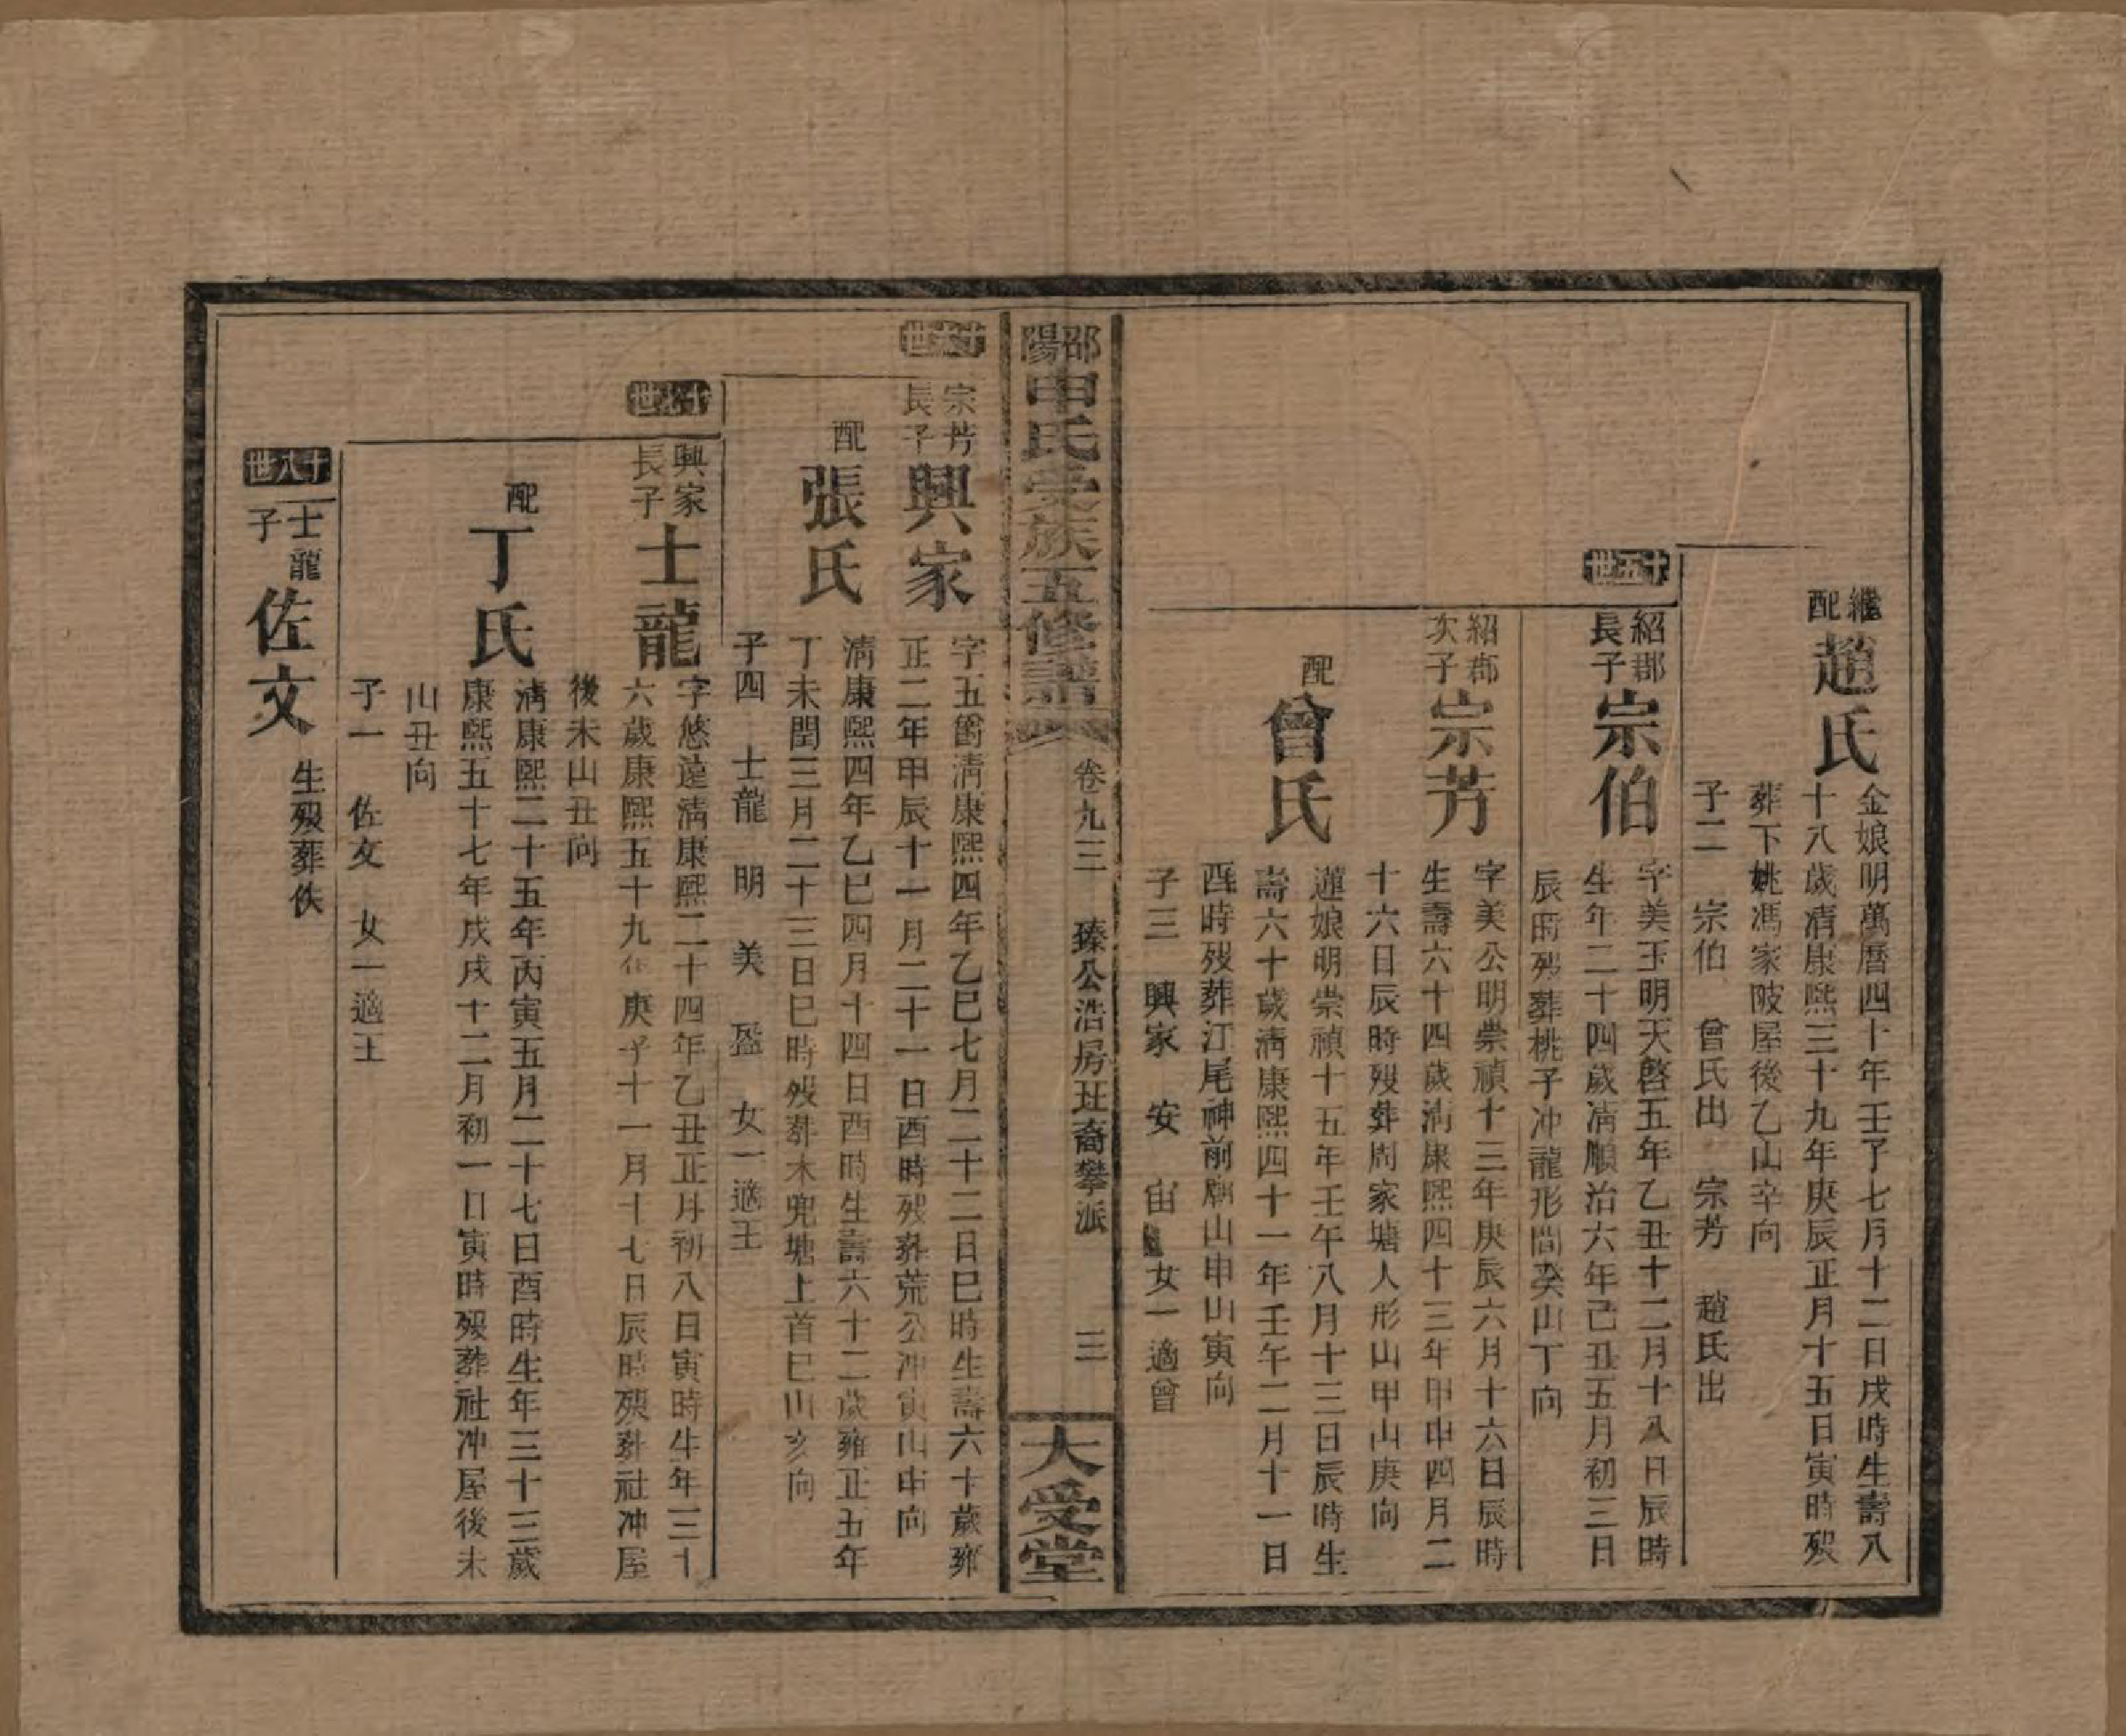 繼配趙氏
金娘明萬曆四十年壬子七月十二日戌時生壽八
十八歲清康熙三十九年庚辰正月十五日寅時歿
葬下姚馮家陂屋後乙山辛向
子二 宗伯 曾氏出 宗芳 趙氏出
十五世
紹郡長子宗伯
字美玉明天啓五年乙丑十二月十八日辰時
生年二十四歲清順治六年己丑五月初三日
辰時歿葬桃子冲龍形間癸山丁向
紹郡次子宗芳
字美公明崇禎十三年庚辰六月十六日辰時
生壽六十四歲清康熙四十三年甲申四月二
十六日辰時歿葬周家塘人形山甲山庚向
配曾氏
蓮娘明崇禎十五年壬午八月十三日辰時生
壽六十歲清康熙四十一年壬午二月十一日
酉時歿葬江尾神前廟山申山寅向
子三 興家 安 宙 女一適曾
邵陽申氏宗族五修譜
卷九三 臻公浩房班裔攀派 三
大受堂
十六世
宗芳長子興家
字五爵清康熙四年乙巳七月二十二日巳時生壽六十歲雍
正二年甲辰十一月二十一日酉時歿葬荒公冲寅山申向
配張氏
清康熙四年乙巳四月十四日酉時生壽六十二歲雍正五年
丁未閏三月二十三日巳時歿葬木兜塘上首巳山亥向
子四 士龍 明 美 盈 女一適王
十七世
興家長子士龍
字悠遠清康熙二十四年乙丑正月初八日寅時生年三十
六歲康熙五十九年庚子十一月十七日辰時歿葬社冲屋
後未山丑向
配丁氏
清康熙二十五年丙寅五月二十七日酉時生年三十三歲
康熙五十七年戊戌十二月初一日寅時歿葬社冲屋後未
山丑向
子一 佐文 女一適王
十八世
士龍子佐文
生歿葬佚